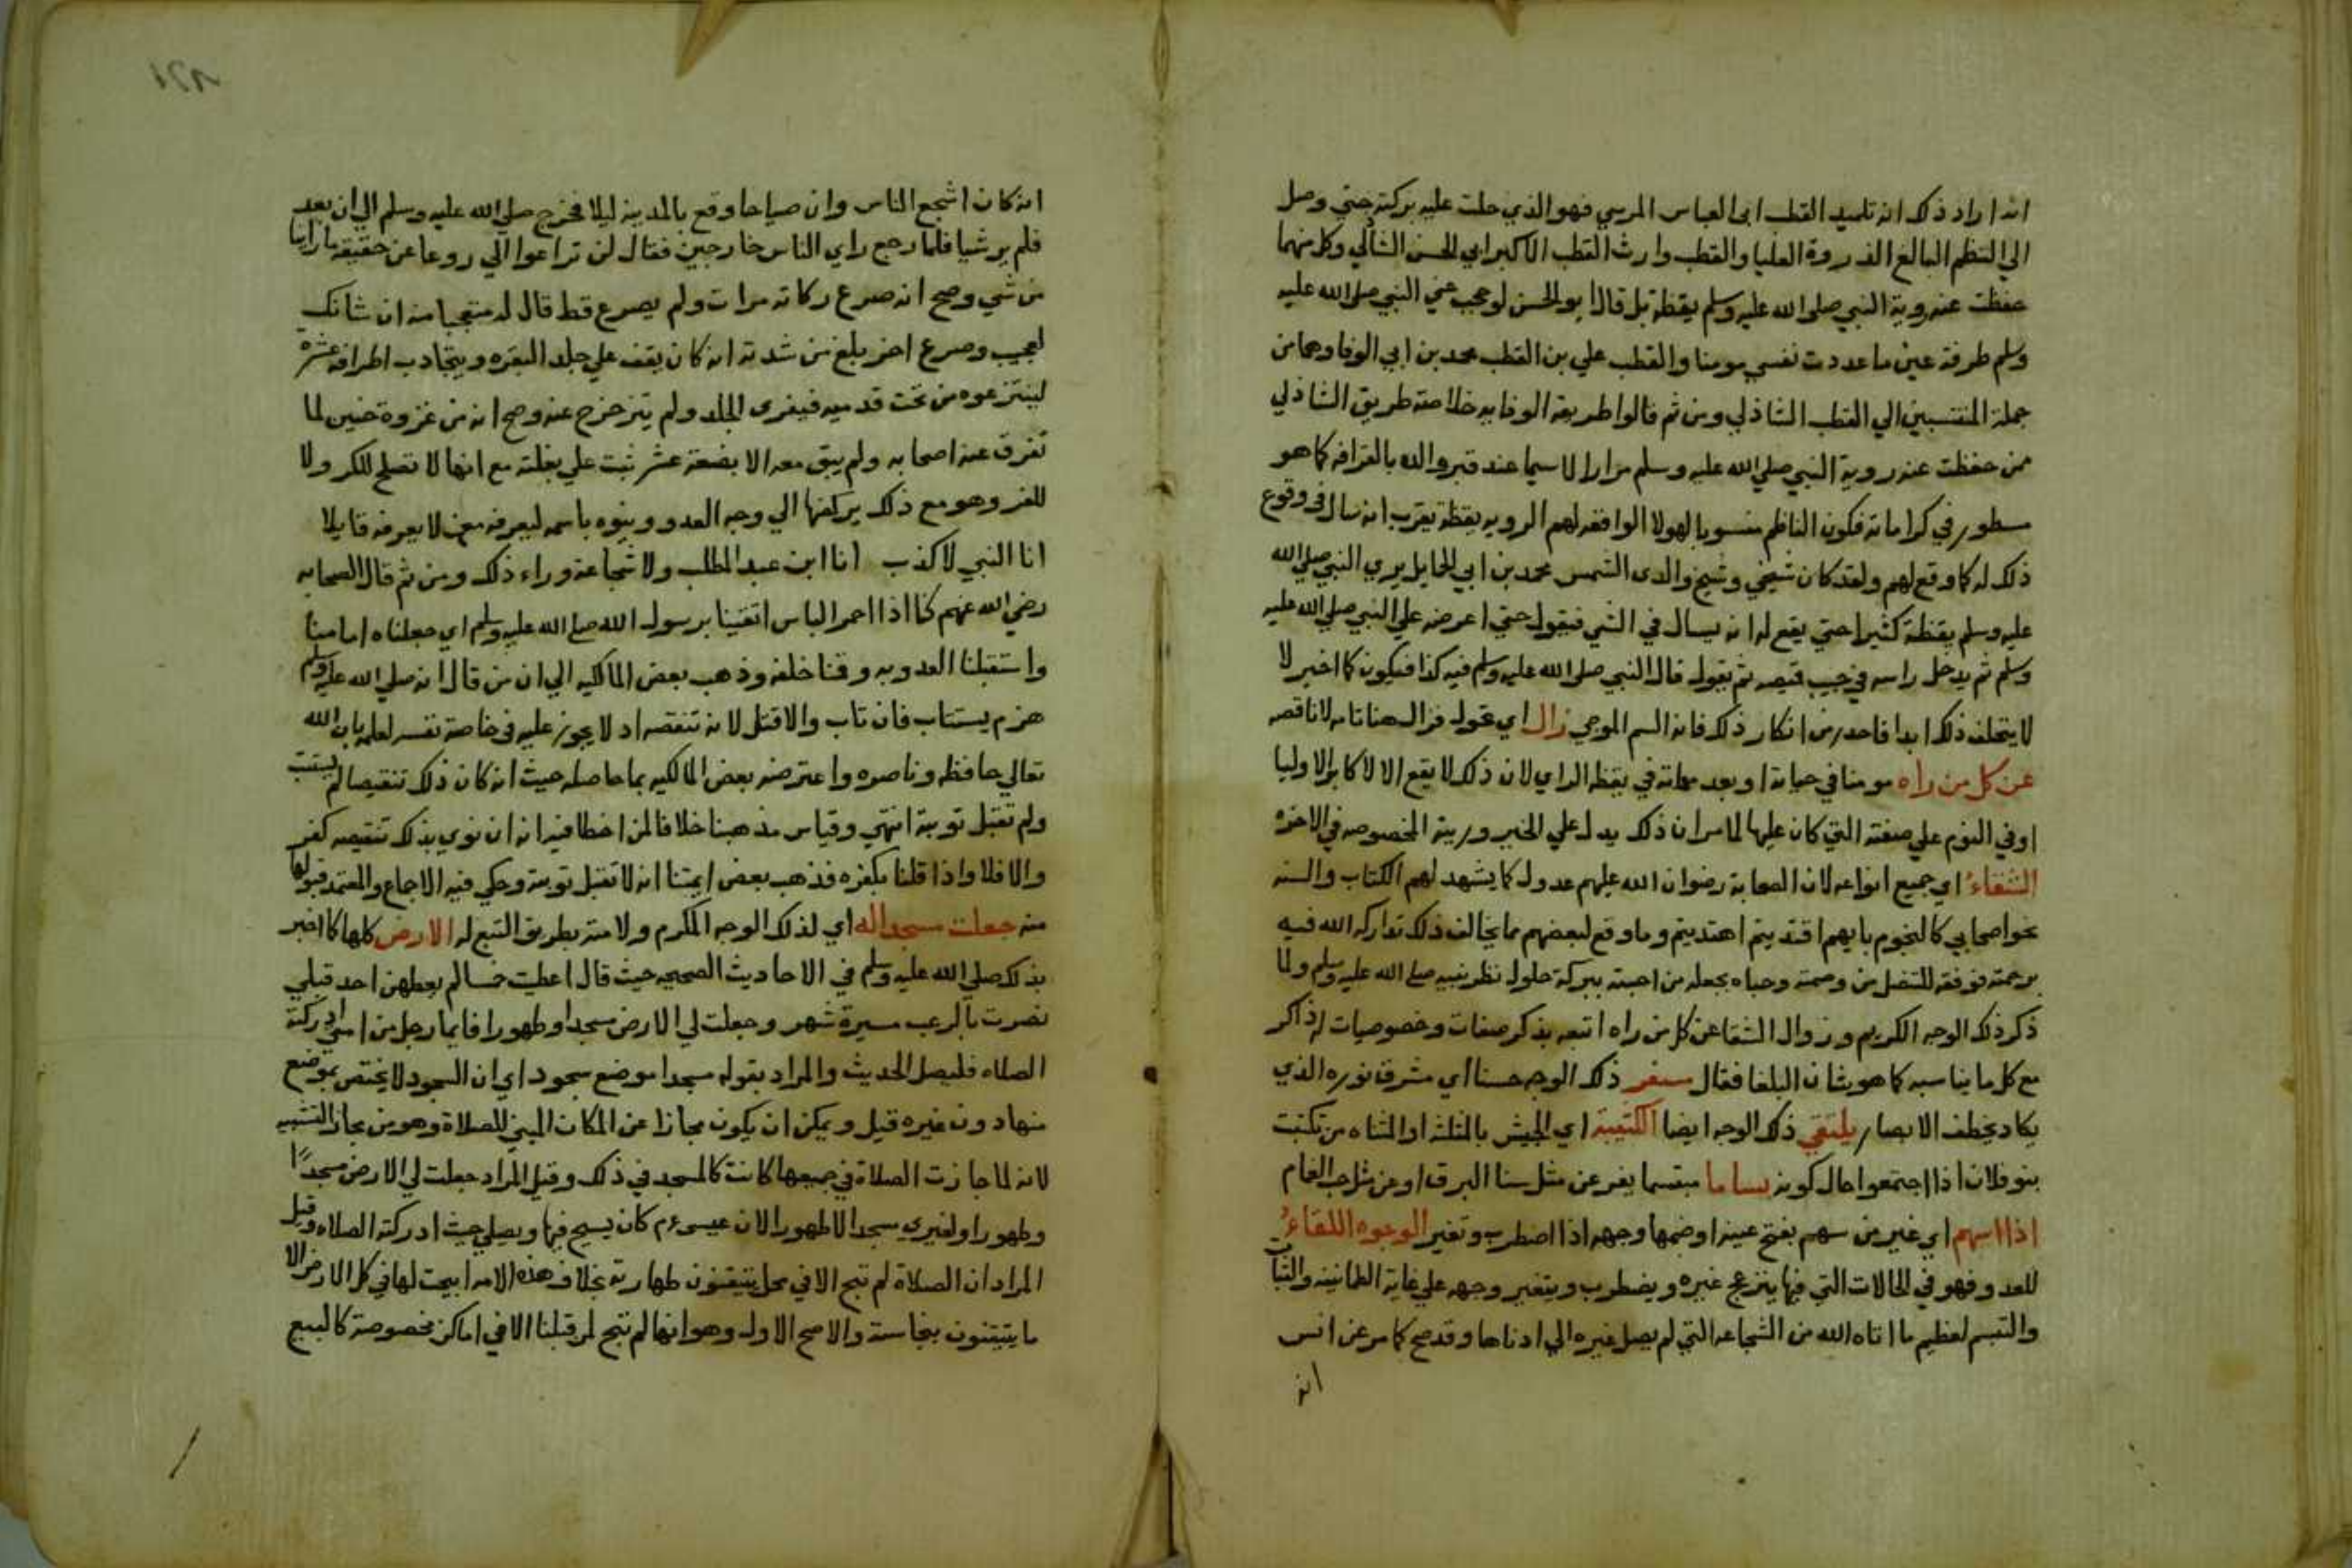 انه اراد ذلك انه تلميذ القطب ابى العباس المرسي فهو الذي حلت عليه بركته حتي وصل
الي النظم البالغ الذروة العليا والقطب وارث القطب الاكبر ابي الحسن الشاذلي وكل منهما
حفظت عنه روية النبي صلى الله عليه وسلم يقظة بل قال ابو الحسن لو حجب عني النبي صلى الله عليه
وسلم طرفة عين ما عددت نفسي مومنا والقطب علي بن القطب محمد بن ابي الوفا وهما من
جملة المنتسبين الي القطب الشاذلي ومن ثم قالوا طريقة الوفايه خلاصة طريق الشاذلي
ممن حفظت عنه روية النبي صلي الله عليه وسلم مرارا لا سيما عند قبر والده بالقرافه كما هو
مسطور في كراماته فكون الناظم منسوبا لهولا الواقعه لهم الرويه يقظة يقرب انه سال في وقوع
ذلك له كما وقع لهم ولقد كان شيخي وشيخ والدى الشمس محمد بن ابي الحمايل يري النبي صلي الله
عليه وسلم يقظة كثيرا حتي يقع له انه يسال في الشي فيقول حتي اعرضه علي النبي صلي الله عليه
وسلم ثم يدخل راسه في جيب قميصه ثم يقول قال النبي صلى الله عليه وسلم فيه كذا فيكون كما اخبر لا
لا يتخلف ذلك ابدا فاحذر من انكار ذلك فانه السم الموحي زال اي تحول فزال هنا تامه لا ناقصه
عن كل من راه مومنا في حياته او بعد مماته في يقظة الراي لان ذلك لا يقع الا لاكابر الاوليا
اوفي النوم علي صفته التي كان عليها لما مر ان ذلك يدل علي الخير ورييته المخصوصه في الاخره
الشقاء اي جميع انواعه لان الصحابة رضوان الله عليهم عدول كما يشهد لهم الكتاب والسنه
نحو اصحابي كالنجوم بايهم اقتديتم اهتديتم وما وقع لبعضهم مما يخالف ذلك تداركه الله فيه
برحمته فوفقه للتنصل من وصمته وحباه بجعله من احبته ببركة حلول نظر نبيه صلى الله عليه وسلم ولما
ذكر ذلك الوجه الكريم وزوال الشقا عن كل من راه اتبعه بذكر صفات وخصوصيات له ذاكر
مع كل ما يناسبه كما هو شان البلغا فقال مسفر ذلك الوجه حسنا اي مشرق نوره الذي
يكاد يخطف الابصار يلتقي ذلك الوجه ايضا الكتيبة اي الجيش بالمثلثه او المثناه من تكتبت
بنو فلان اذا اجتمعوا حال كونه بساما مبتسما يفر عن مثل سنا البرق او عن مثل حب الغمام
اذا اسهم اي غير من سهم بفتح عينه او ضمها وجهه اذا اضطرب وتغير الوجوه اللقاء
للعدو فهو في الحالات التي فيها ينزعج غيره ويضطرب ويتغير وجهه علي غاية الطمانينه والثبات
والتبسم لعظيم ما اتاه الله من الشجاعه التي لم يصل غيره الي ادناها وقد صح كما مر عن انس
انه
انه كان اشجع الناس وان صياحا وقع بالمدينة ليلا فخرج صلى الله عليه وسلم الي ان بعد
فلم ير شيا فلما رجع راي الناس خارجين فقال لن تراعوا الي روعا عن حقيقة ما راينا
من شي وصح انه صرع ركانه مرات ولم يصرع قط قال له متعجبا منه ان شانك
لعجيب وصرع اخر بلغ من شدته انه كان يقف علي جلد البقره ويتجاذب اطرافه عشرة
لينتزعوه من تحت قدميه فيفرى الجلد ولم يتزحزح عنه وصح انه من غزوة حنين لما
تفرق عنه اصحابه ولم يبق معه الا بضعة عشر ثبت علي بغلته مع انها لا تصلح للكر ولا
للفر وهو مع ذلك يركضها الي وجه العدو وينوه باسمه ليعرفه من لا يعرفه قايلا
انا النبي لا كذب انا ابن عبد المطلب ولا شجاعة وراء ذلك ومن ثم قال الصحابه
رضي الله عنهم كنا اذا احمر الباس اتقينا برسول الله صلى الله عليه وسلم اي جعلناه امامنا
واستقبلنا العدو به وقنا خلفه وذهب بعض المالكيه الي ان من قال انه صلي الله عليه وسلم
هزم يستتاب فان تاب والا قتل لانه تنقصه اذ لا يجوز عليه في خاصة نفسه لعلمه بان الله
تعالي حافظه وناصره واعترضه بعض المالكيه بما حاصله حيث انه كان ذلك تنقيصا لم يستتب
ولم تقبل توبته انتهي وقياس مذهبنا خلافا لمن اخطا فيه انه ان نوي بذلك تنقيصه كفر
والا فلا واذا قلنا بكفره فذهب بعض ايمتنا انه لا تقبل توبته وحكي فيه الاجماع والمعتمد قبولها
منه جعلت مسجدا له اي لذلك الوجه المكرم ولامته بطريق التبع له الارض كلها كما اخبر
بذلك صلي الله عليه وسلم في الاحاديث الصحيحه حيث قال اعطيت خمسا لم يعطهن احد قبلي
نصرت بالرعب مسيرة شهر وجعلت لي الارض مسجدا وطهورا فايما رجل من امتي ادركته
الصلاه فليصل الحديث والمراد بقوله مسجدا موضع سجود اي ان السجود لا يختص بموضع
منها دون غيره قيل ويمكن ان يكون مجازا عن المكان المبني للصلاة وهو من مجاز التشبيه
لانه لما جازت الصلاة في جميعها كانت كالمسجد في ذلك وقيل المراد جعلت لي الارض مسجدًا
وطهورا ولغيري مسجدا لا طهورا لان عيسى عم كان يسيح فيها ويصلي حيث ادركته الصلاه وقيل
المراد ان الصلاة لم تبح الا في محل يتيقنون طهارته بخلاف هذه الامه ابيحت لها في كل الارض الا
ما يتيقنون بنجاسته والاصح الاول وهو انها لم تبح لمن قبلنا الا في اماكن مخصوصة كالبيع